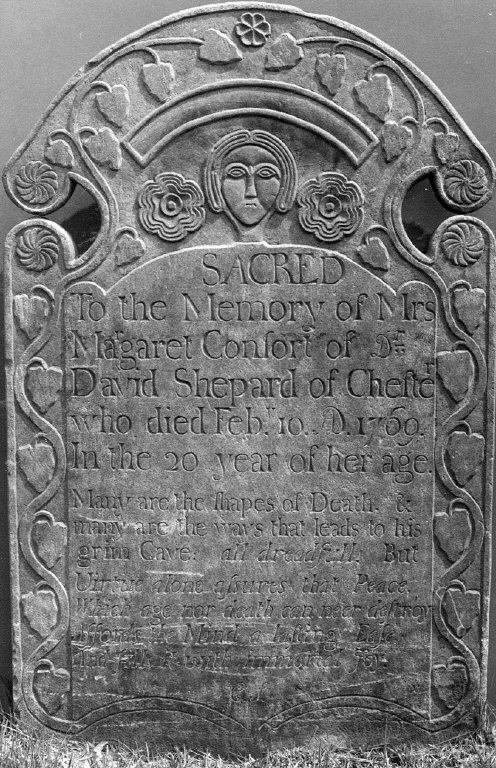 SACRED
To the Memory of Mrs
Margaret Conſort of Dr.
David Shepard of Cheſter
who died Feb.ry 10. AD. 1769.
In the 20 year of her age.
Many are the ſhapes of Death. &
many are the ways that leads to his
grim Cave: all dreadfull. But
Virtue alone aſsures that Peace.
Which age nor death can neer deſtroy
affords the Mind a laſting Eaſe
And fills it with immortal joy.